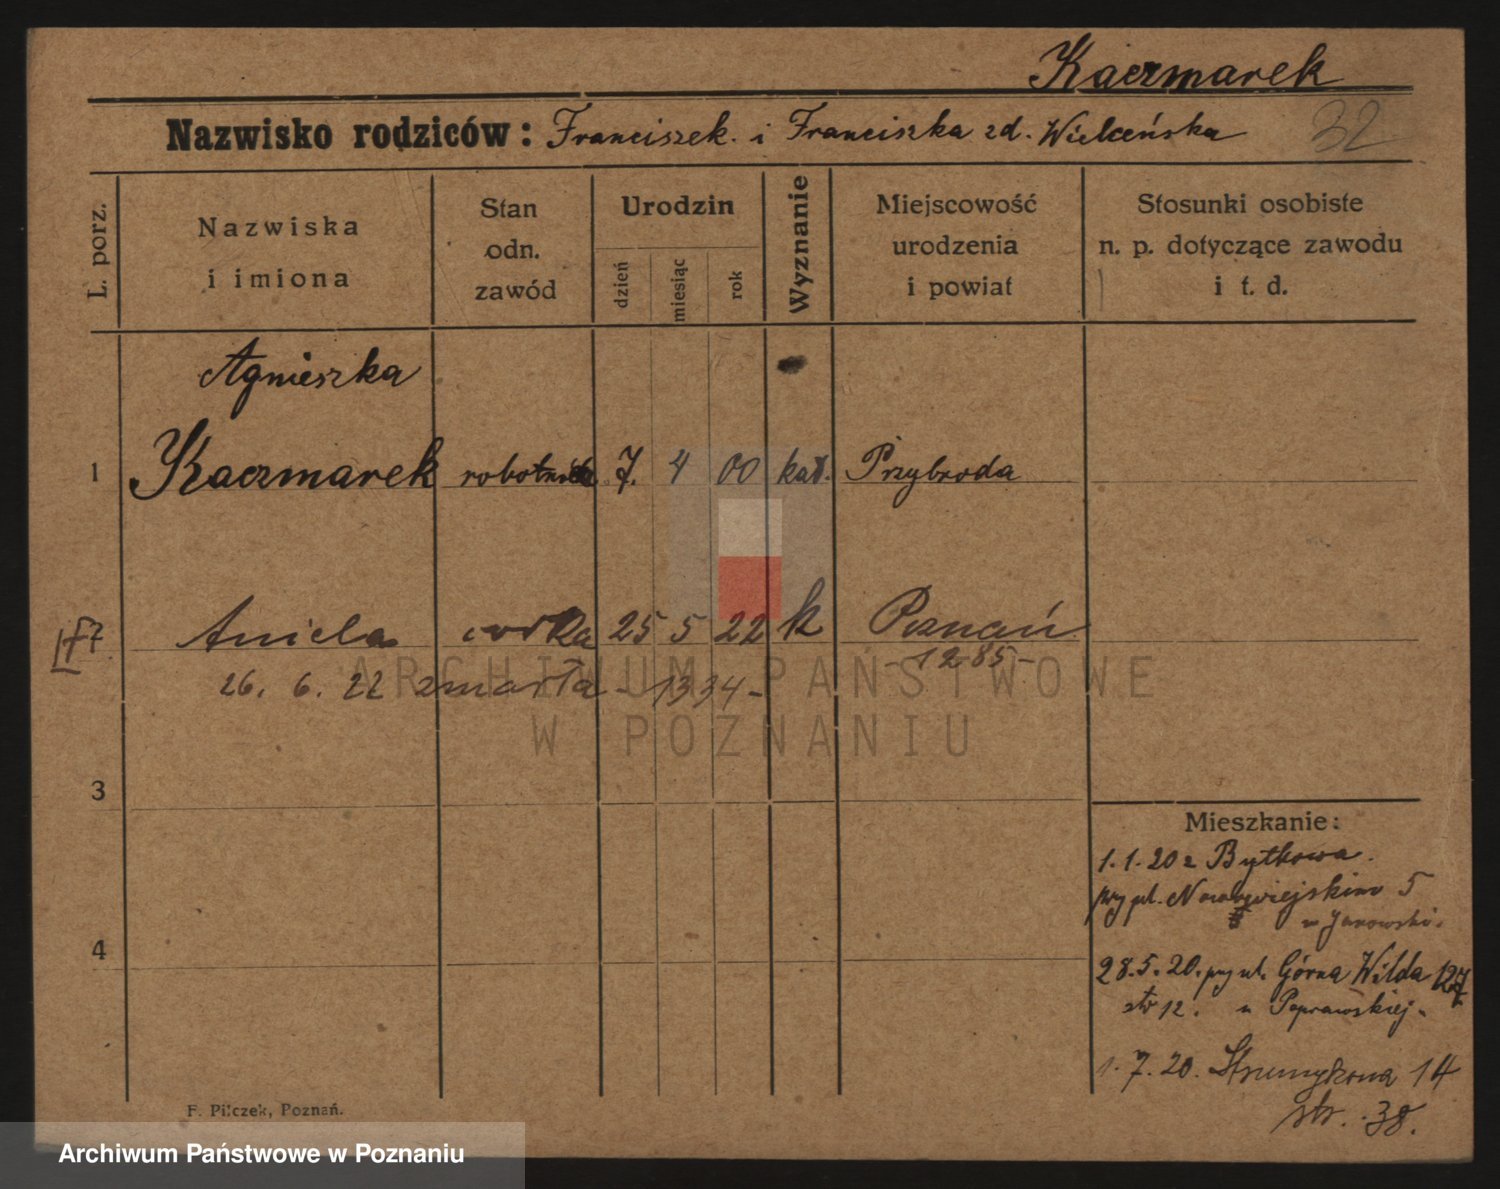 Kaczmarek
Nazwisko rodziców: Franciszek i Franciszka zd.
32
L. porz.
Nazwiska
i imiona
Stan
odn.
zawód
Urodzin
dzień
miesiąc
rok
Wyznanie
Miejscowość
urodzenia
i powiat
Stosunki osobiste
n. p. dotyczące zawodu
i t. d.
Agnieszka
1 Kaczmarek 7. 4 00 kat. Przybroda
Aniela córka 25 5 22 k Poznań
-1285-
26. 6. 22 zmarła -1334-
ARCHIWUM PAŃSTWOWE
W POZNANIU
3
4
Mieszkanie:
1.1.20 z Bytkowa.
przy pl. Nowowiejskim 5
u Janowski.
28.5.20. przy ul. Górna Wilda 127
str 12. u Poprawskiej.
1.7.20. Strumykowa 14
str. 38.
F. Pilczek, Poznań.
Archiwum Państwowe w Poznaniu